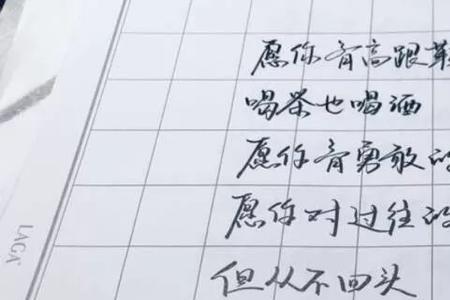 愿你有高跟鞋
喝茶也喝酒
愿你有勇敢的
愿你对过往的
但从不回头
LAGA